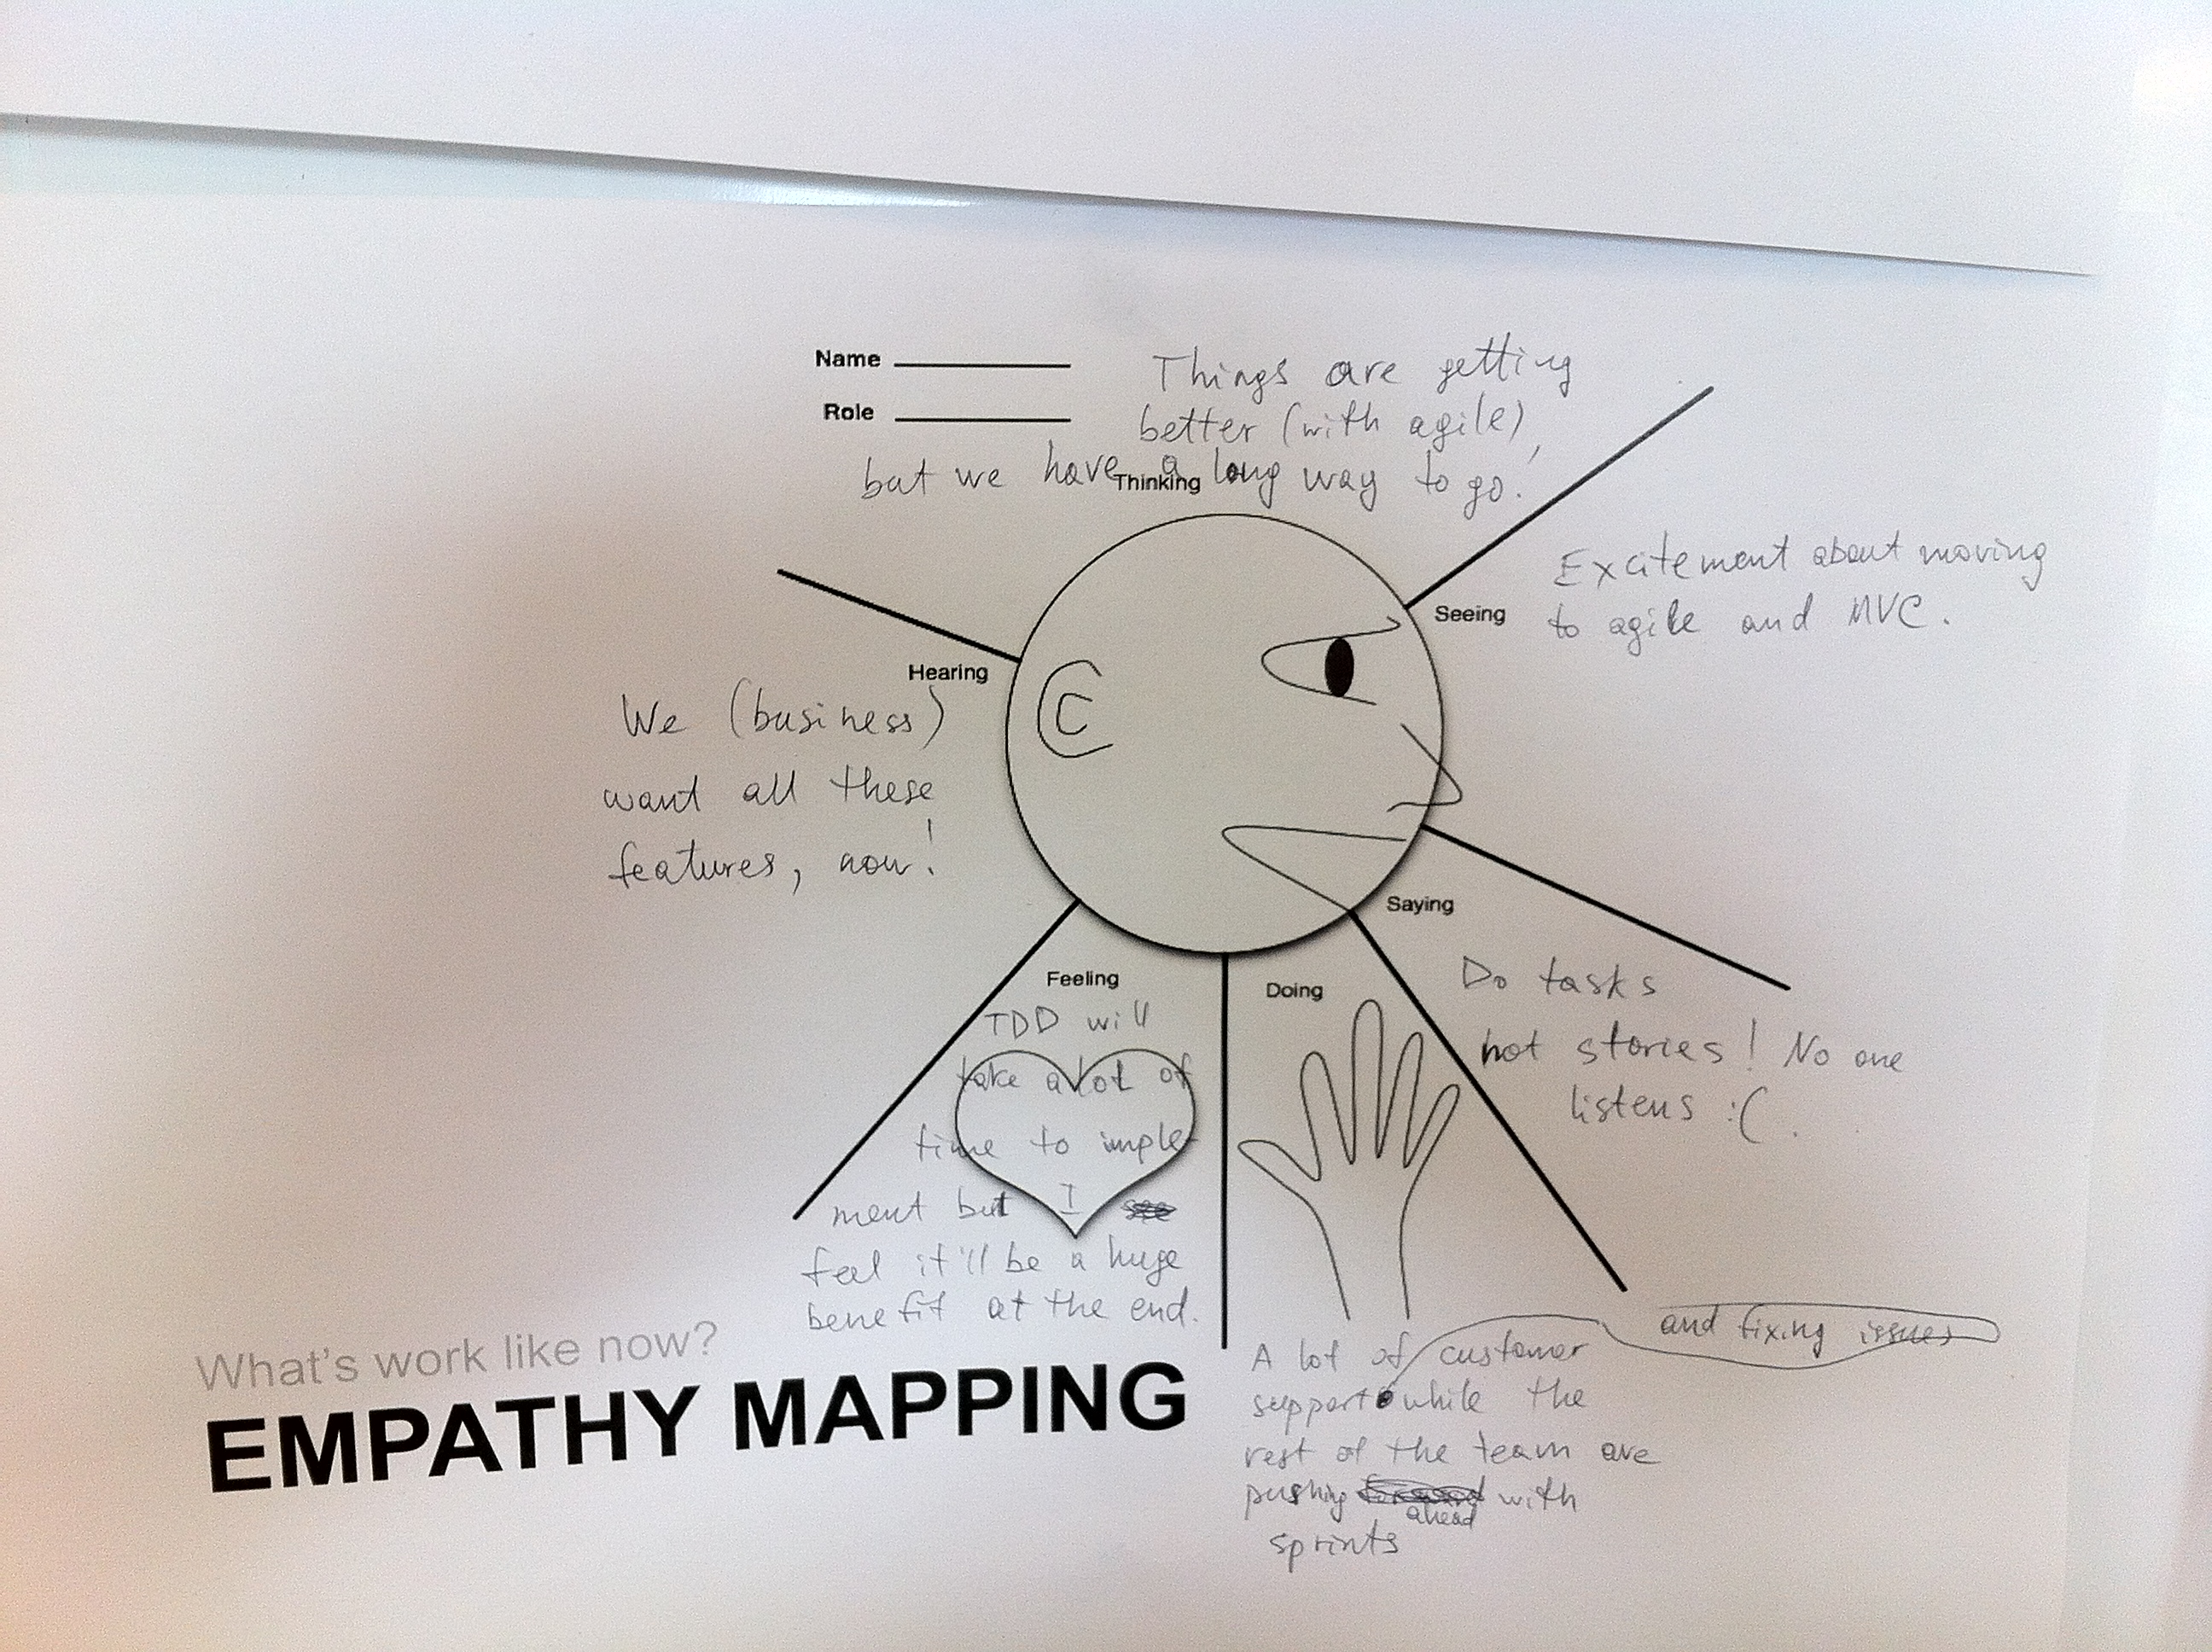 Name
Role
Things are getting
better (with agile),
but we have a long way to go!
Thinking
Seeing
Excitement about moving
to agile and MVC.
Hearing
We (business)
want all these
features, now!
Saying
Do tasks
not stories! No one
listens :(.
Feeling
TDD will
take a lot of
time to imple-
ment but I
feel it'll be a huge
benefit at the end.
Doing
A lot of customer
support while the
and fixing issues
rest of the team are
pushing forward with
ahead
sprints
What's work like now?
EMPATHY MAPPING